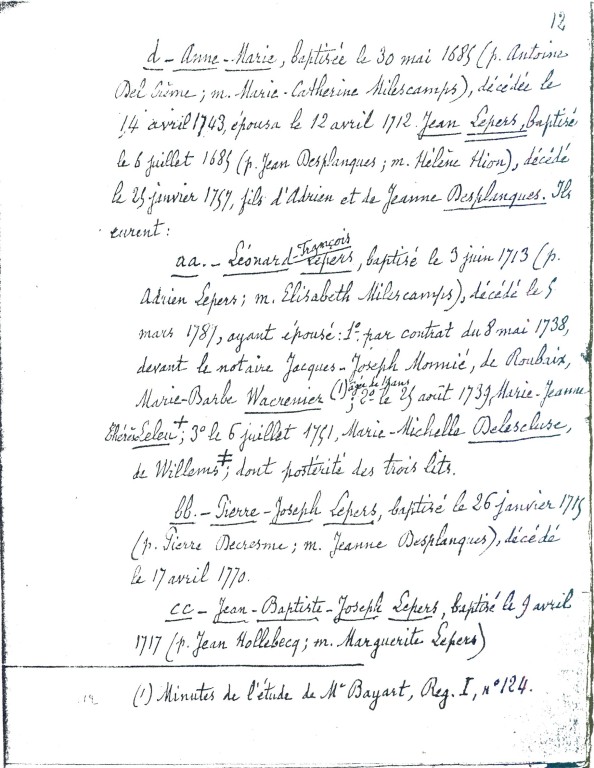 12
d - Anne-Marie, baptisée le 30 mai 1685 (p. Antoine
Del ; m. Marie-Catherine Milescamps), décédée le
14 avril 1743, épousa le 12 avril 1712 Jean Lepers, baptisé
le 6 juillet 1685 (p. Jean Desplanques ; m. Hélène Hion), décédé
le 25 janvier 1757, fils d'Adrien et de Jeanne Desplanques. Ils
eurent :
François
aa. - Léonard Lepers, baptisé le 3 juin 1713 (p.
Adrien Lepers ; m. Elisabeth Milescamps), décédé le 5
mars 1787, ayant épousé : 1º par contrat du 8 mai 1738,
devant le notaire Jacques-Joseph Monnié, de Roubaix,
âgée de ans
Marie-Barbe Wacrenier (1) ; 2º le 25 août 1739, Marie-Jeanne
Thérèse Leleu ; 3º le 6 juillet 1751, Marie-Michelle Delescluse,
de Willems ; dont postérité des trois lits.
bb. - Pierre-Joseph Lepers, baptisé le 26 janvier 1715
(p. Pierre Decresme ; m. Jeanne Desplanques), décédé
le 17 avril 1770.
cc - Jean-Baptiste-Joseph Lepers, baptisé le 9 avril
1717 (p. Jean Hollebecq ; m. Marguerite Lepers)
(1) Minutes de l'étude de Me Bayart, Reg. I, nº 124.